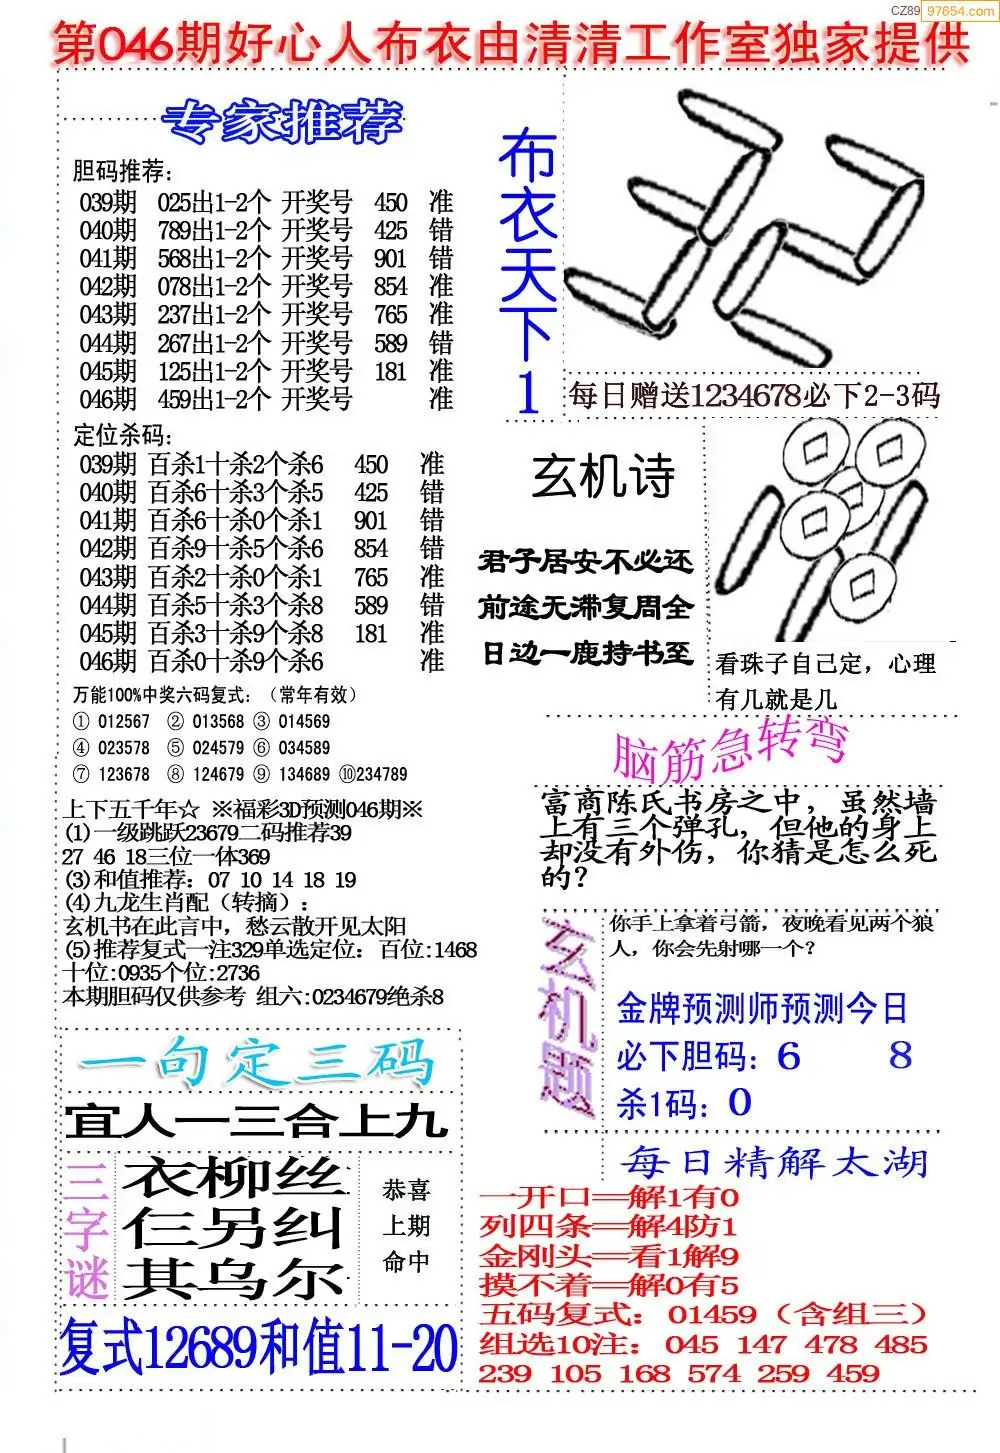 CZ89 97654.com
第046期好心人布衣由清清工作室独家提供
专家推荐
胆码推荐：
039期 025出1-2个 开奖号 450 准
040期 789出1-2个 开奖号 425 错
041期 568出1-2个 开奖号 901 错
042期 078出1-2个 开奖号 854 准
043期 237出1-2个 开奖号 765 准
044期 267出1-2个 开奖号 589 错
045期 125出1-2个 开奖号 181 准
046期 459出1-2个 开奖号 准
定位杀码：
039期 百杀1十杀2个杀6 450 准
040期 百杀6十杀3个杀5 425 错
041期 百杀6十杀0个杀1 901 错
042期 百杀9十杀5个杀6 854 错
043期 百杀2十杀0个杀1 765 准
044期 百杀5十杀3个杀8 589 错
045期 百杀3十杀9个杀8 181 准
046期 百杀0十杀9个杀6 准
万能100%中奖六码复式：（常年有效）
① 012567 ② 013568 ③ 014569
④ 023578 ⑤ 024579 ⑥ 034589
⑦ 123678 ⑧ 124679 ⑨ 134689 ⑩234789
上下五千年☆ ※福彩3D预测046期※
(1)一级跳跃23679二码推荐39
27 46 18三位一体369
(3)和值推荐：07 10 14 18 19
(4)九龙生肖配（转摘）：
玄机书在此言中，愁云散开见太阳
(5)推荐复式一注329单选定位：百位:1468
十位:0935个位:2736
本期胆码仅供参考 组六:0234679绝杀8
一句定三码
宜人一三合上九
三字谜
衣柳丝
仨另纠
其乌尔
恭喜
上期
命中
复式12689和值11-20
布衣天下1
每日赠送1234678必下2-3码
玄机诗
君子居安不必还
前途无滞复周全
日边一鹿持书至
看珠子自己定，心理
有几就是几
脑筋急转弯
富商陈氏书房之中，虽然墙
上有三个弹孔，但他的身上
却没有外伤，你猜是怎么死
的？
玄机题
你手上拿着弓箭，夜晚看见两个狼
人，你会先射哪一个？
金牌预测师预测今日
必下胆码：6 8
杀1码：0
每日精解太湖
一开口══解1有0
列四条══解4防1
金刚头══看1解9
摸不着══解0有5
五码复式：01459（含组三）
组选10注： 045 147 478 485
239 105 168 574 259 459